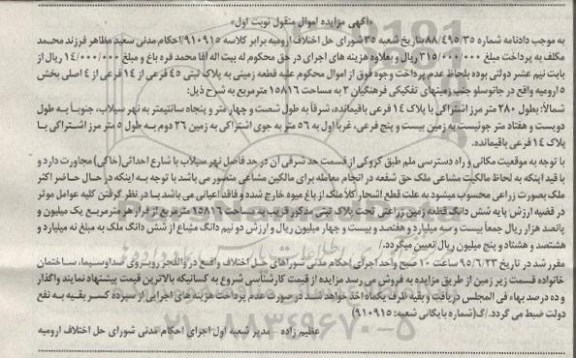 «آگهی مزایده اموال منقول نوبت اول»
به موجب دادنامه شماره ۸۸/۴۹۵/۳۵ بتاریخ شعبه ۳۵ شورای حل اختلاف ارومیه برابر کلاسه ۹۱۰۹۱۵ احکام مدنی سعید مظاهر فرزند محمد
مکلف به پرداخت مبلغ ۳۱۵/۰۰۰/۰۰۰ ریال و بعلاوه هزینه های اجرای در حق محکوم له بیت اله آقا محمد قره باغ و مبلغ ۱۴/۰۰۰/۰۰۰ ریال از
بابت نیم عشر دولتی بوده بلحاظ عدم پرداخت وجه فوق از اموال محکوم علیه قطعه زمینی به پلاک ثبتی ۴۵ فرعی از ۱۴ فرعی از ۴ اصلی بخش
۵ ارومیه واقع در جانوسلو جنب زمینهای تفکیکی فرهنگیان ۳ به مساحت ۱۵۸۱۶ مترمربع به شرح ذیل:
شمالاً: بطول ۲۸۰ متر مرز اشتراکی با پلاک ۱۴ فرعی باقیمانده، شرقاً به طول شصت و چهار متر و پنجاه سانتیمتر به نهر سیلاب، جنوباً به طول
دویست و هفتاد متر جوئیست به زمین بیست و پنج فرعی، غرباً اول به ۵۶ متر به جوی اشتراکی به زمین ۲۶ دوم به طول ۵ متر مرز اشتراکی با
پلاک ۱۴ فرعی باقیمانده.
با توجه به موقعیت مکانی و راه دسترسی ملم طبق کروکی از قسمت حد شرقی آن دو حد فاصل نهر سیلاب با شارع احداثی (خاکی) مجاورت دارد و
با قید اینکه به لحاظ مالکیت مشاعی ملک حق شفعه در انجام معامله برای مالکین مشاعی متصور می باشد با توجه به اینکه در حال حاضر اکثر
ملک بصورت زراعی محسوب میشود به علت قطع اشجار کلاً ملک از باغ میوه خارج شده و فاقد اعیانی می باشد با در نظر گرفتن کلیه عوامل موثر
در قضیه ارزش پایه شش دانگ قطعه زمین زراعتی تحت پلاک ثبتی مذکور قریب به مساحت ۱۵۸۱۶ مترمربع از قرار هر مترمربع یک میلیون و
پانصد هزار ریال جمعاً بیست و سه میلیارد و هفتصد و بیست و چهار میلیون ریال و ارزش دو نیم دانگ مشاع از شش دانگ ملک به مبلغ نه میلیارد و
هشتصد و هشتاد و پنج میلیون ریال تعیین میگردد./
مقرر شد در تاریخ ۹۵/۶/۲۳ ساعت ۱۰ صبح واحد اجرای احکام مدنی شوراهای حل اختلاف واقع در والفجر روبروی صداوسیما، ساختمان
خانواده قسمت زیر زمین از طریق مزایده به فروش می رسد مزایده از قیمت کارشناسی شروع به کسانیکه بالاترین قیمت پیشنهاد نمایند واگذار
و ده درصد بهاء فی المجلس دریافت و بقیه ظرف یکماه اخذ خواهد شد در صورت عدم پرداخت هزینه های اجرایی از سپرده کسر بقیه به نفع
دولت ضبط می گردد./گ (شماره بایگانی شعبه: ۹۱۰۹۱۵)
عظیم زاده مدیر شعبه اول اجرای احکام مدنی شورای حل اختلاف ارومیه
۰۲۱-۸۸۳۴۹۶۷۰-۵